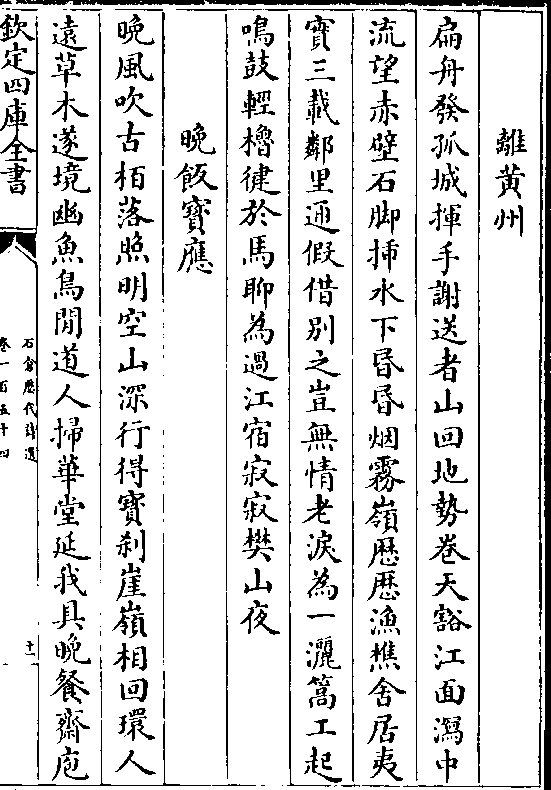 離黃州
扁舟發孤城揮手謝送者山回地勢卷天豁江面瀉中
流望赤壁石脚揷水下昏昏烟霧嶺歴歴漁樵舍居夷
實三載鄰里通假借别之豈無情老淚為一灑篙工起
鳴鼓輕櫓健於馬聊為過江宿寂寂樊山夜
晚飯寶應
晚風吹古栢落照明空山深行得寶刹崖嶺相回環人
遠草木遂境幽魚鳥閒道人掃華堂延我具晚餐齋庖
欽定四庫全書
石倉歴代詩選
卷一百五十四
十一